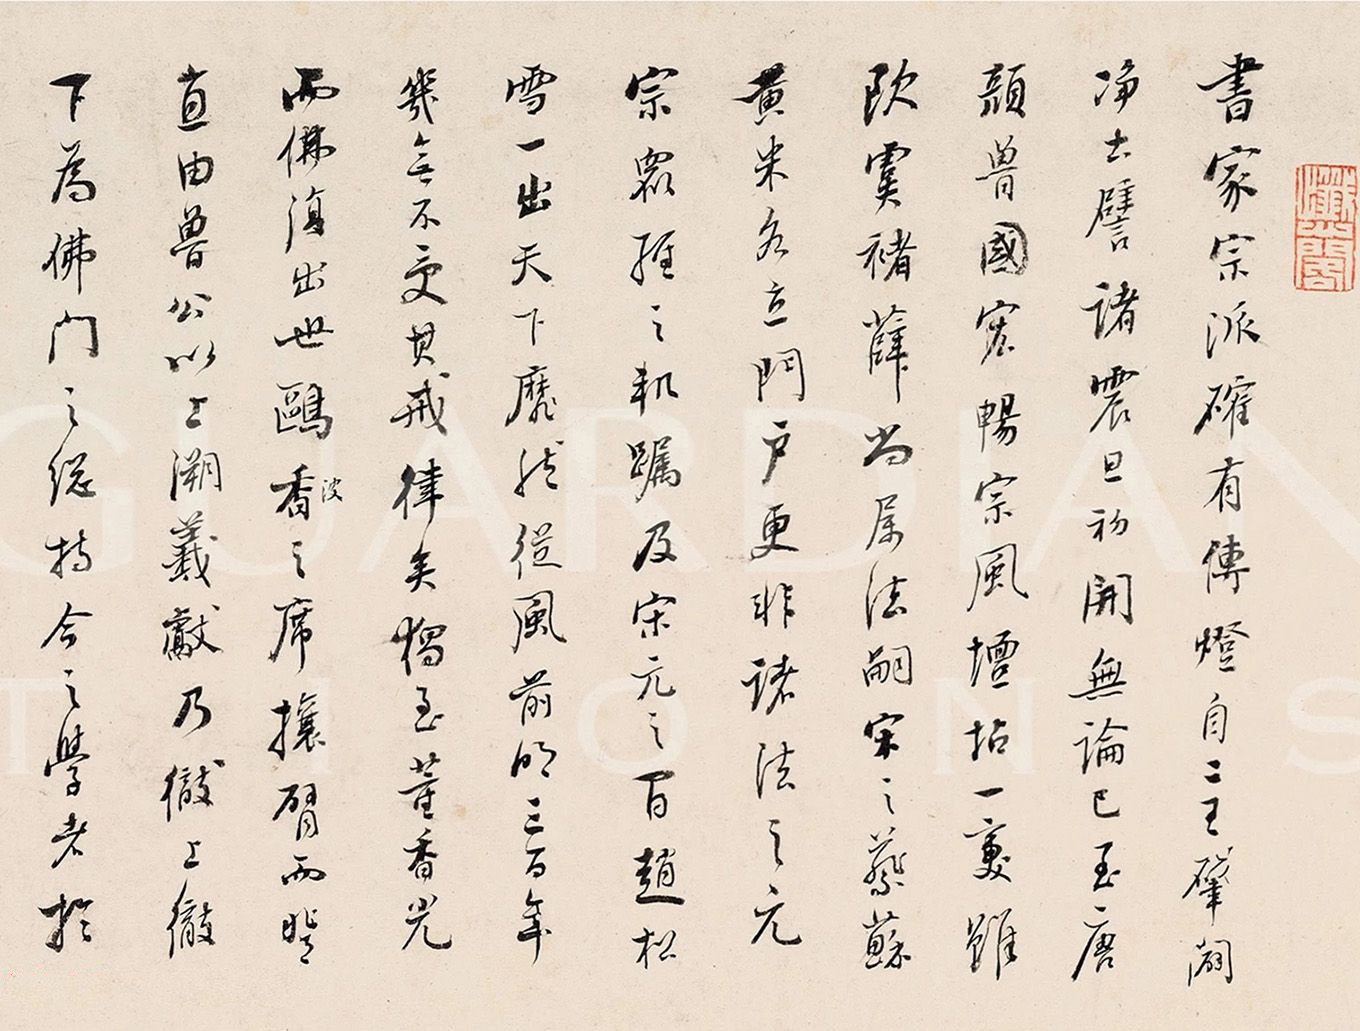 書家宗派確有傳燈自二王肇闢
净土譬諸震旦初開無論已至唐
顏魯國宏暢宗風壇坫一變雖
歐虞褚薛尚属法嗣宋之蔡蘇
黃米各立門户更非諸法之元
宗嚴經之軌躅及宋元之百趙松
雪一出天下靡然從風前明三百年
幾無不受其戒律矣獨至董香光
而佛復出世鷗香之席攘臂而登
波
直由魯公以上溯羲獻乃徹上徹
下為佛門之總持今之學者於
GUARDIAN